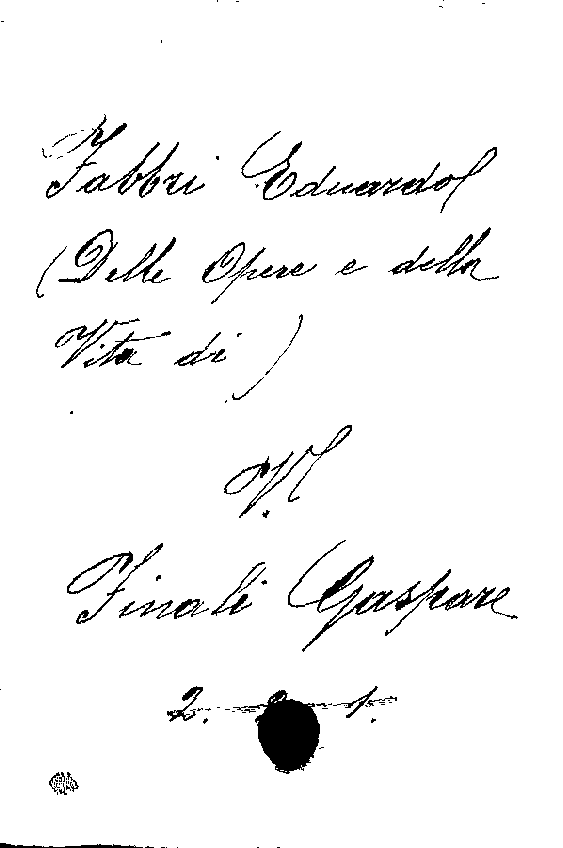 Fabbri Eduardo
(Delle Opere e della
Vita di)
V.
Finali Gaspare
2. 2. 1.